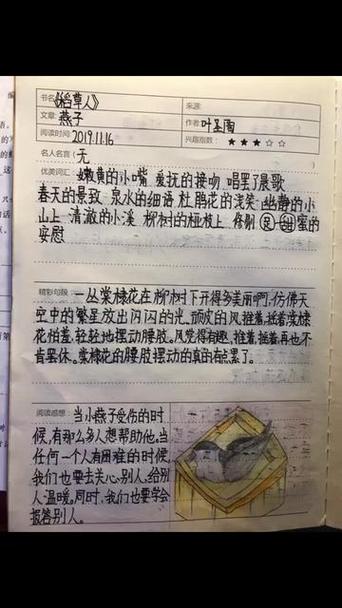 书名:《稻草人》 来源:
文章: 燕子 作者: 叶圣陶
阅读时间: 2019.11.16 兴趣指数: ★★★☆☆
名人名言( 无 )
优美词汇: 嫩黄的小嘴 爱抚的接吻 唱罢了晨歌
春天的景致 泉水的细语 杜鹃花的浅笑 幽静的小
山上 清澈的小溪 柳树的桠枝上 甜蜜的
安慰
精彩句段: 一丛棠棣花在柳树下开得多美丽啊,仿佛天
空中的繁星放出闪闪的光。顽皮的风推着,摇着棠棣
花怕羞,轻轻地摆动腰肢。风觉得有趣,推着,摇着,再也不
肯罢休。棠棣花的腰肢摆动的真的有些累了。
阅读感想: 当小燕子受伤的时
候,有那么多人想帮助他。当
任何一个人有困难的时候,
我们也要去关心别人,给别
人温暖。同时,我们也要学会
报答别人。